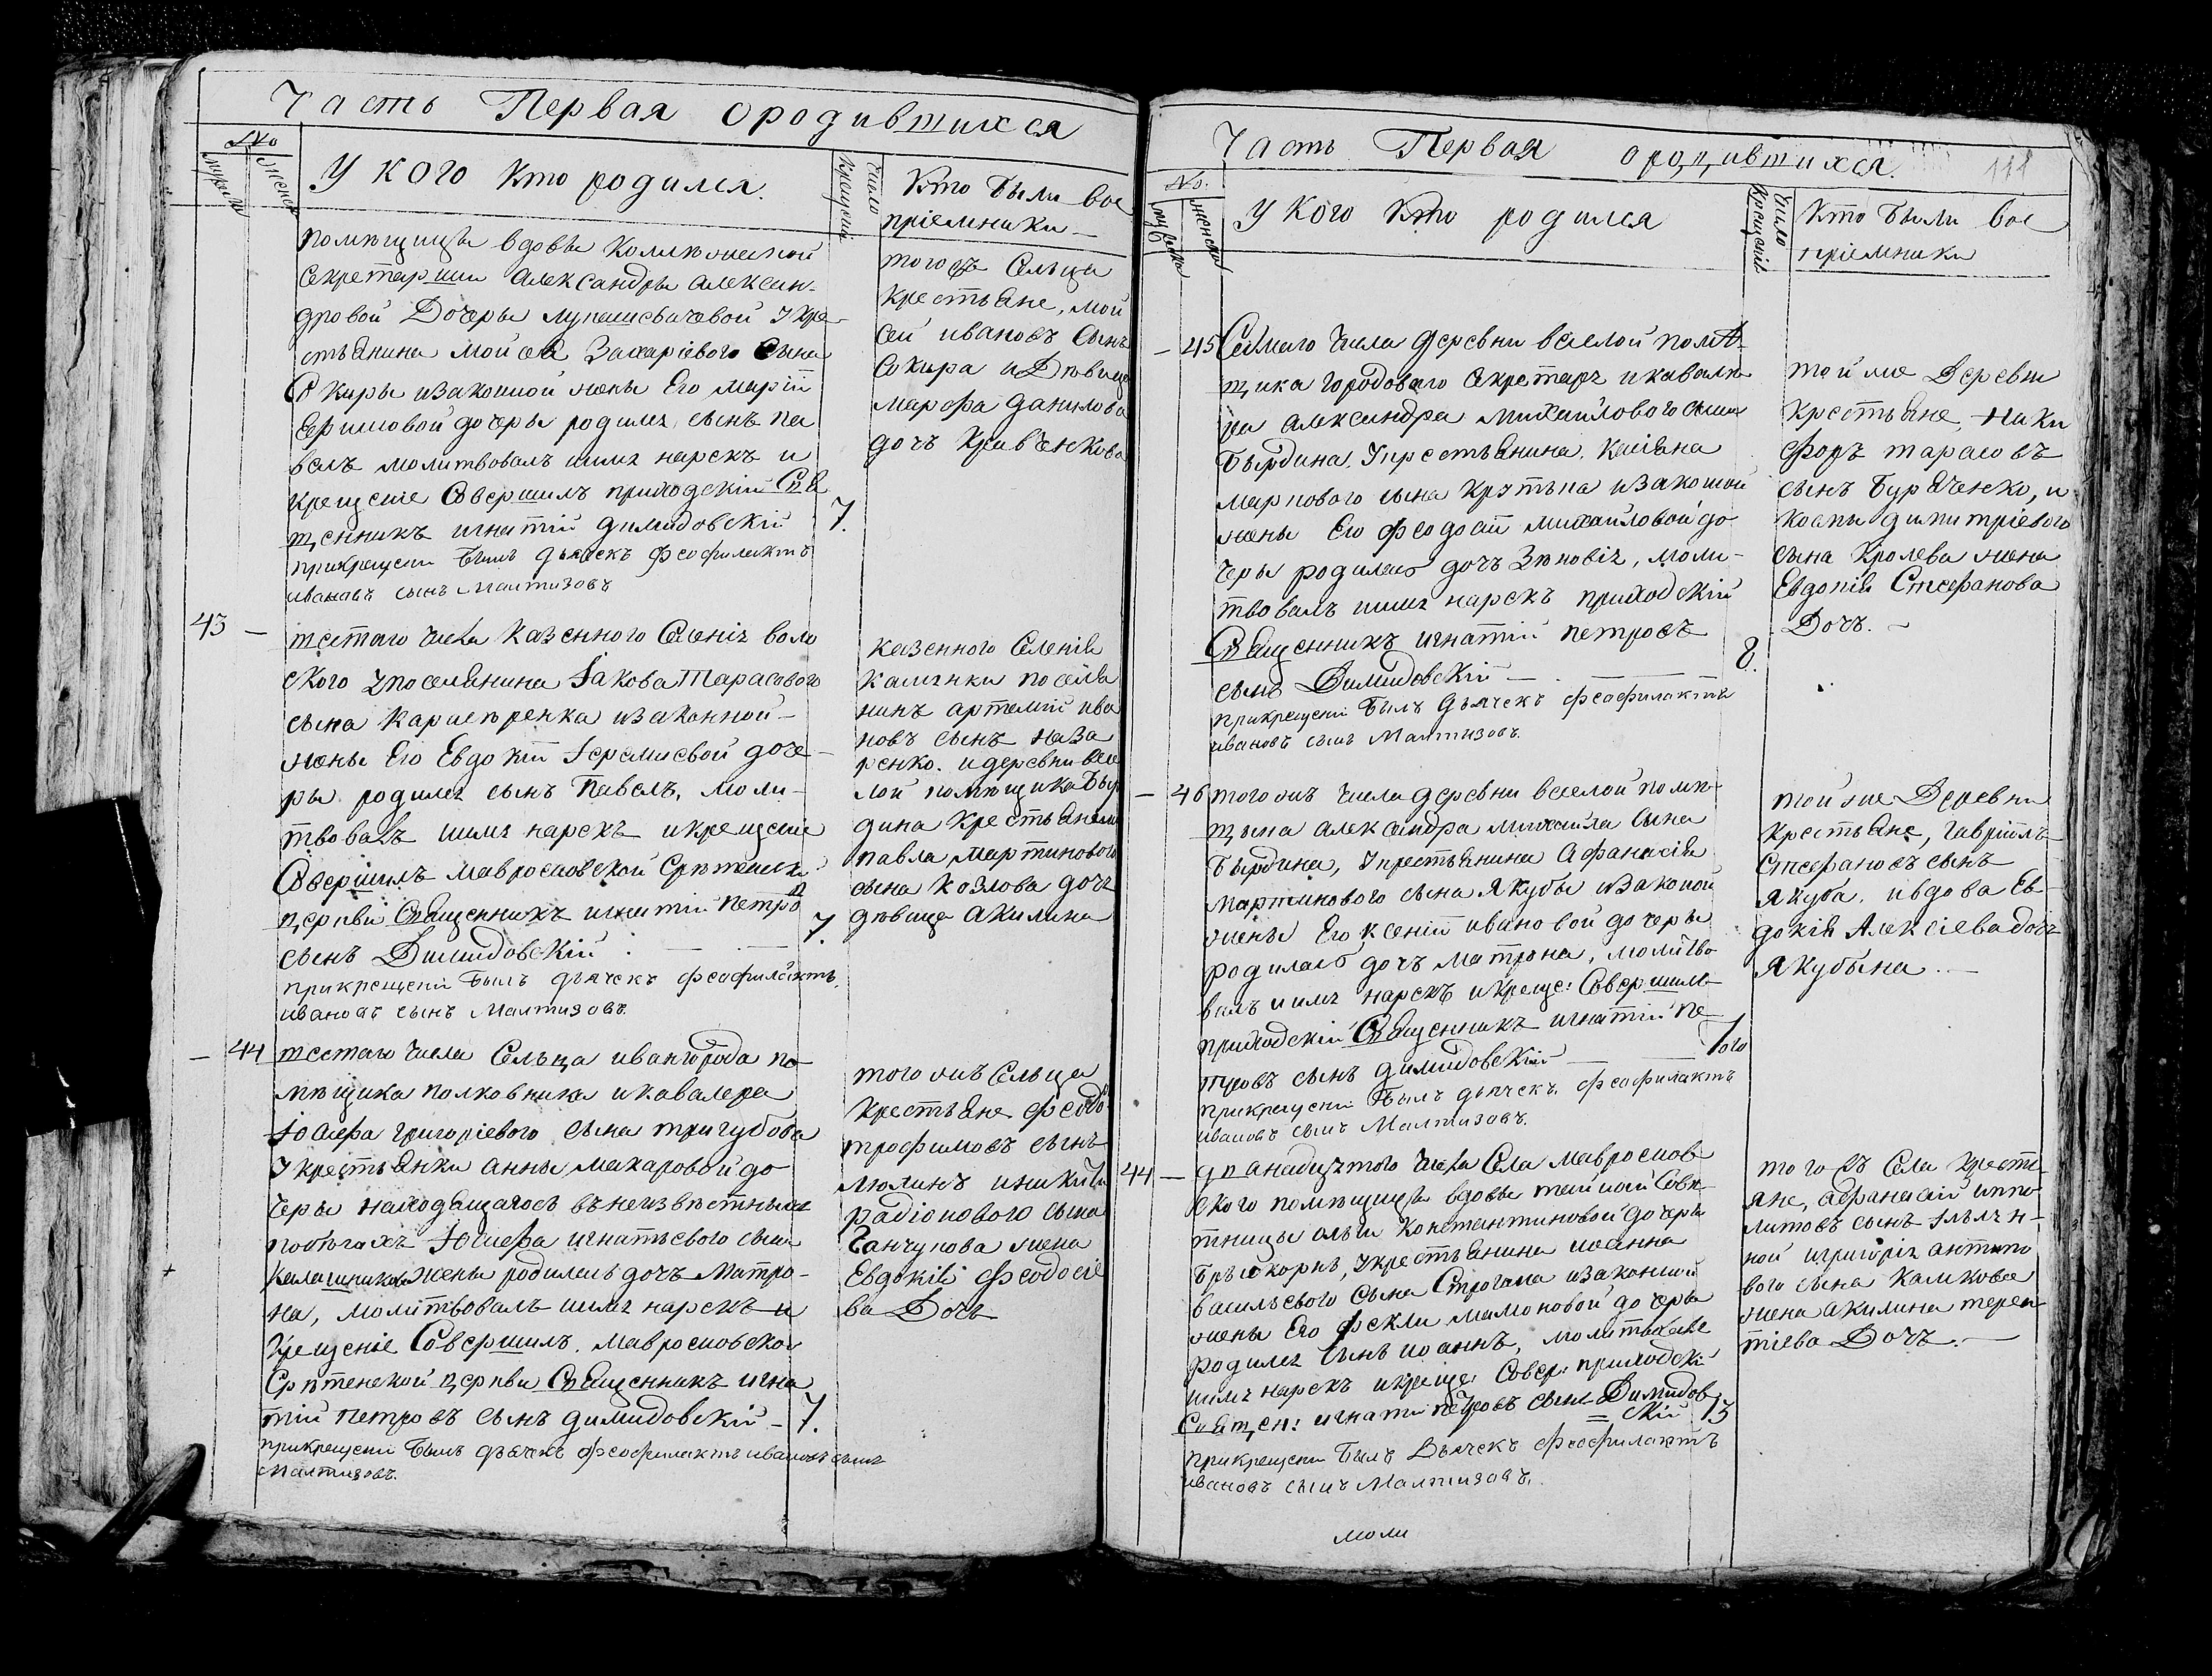 Часть Первая о родившихся
№
мужеск женск
У кого кто родился.
Число Крещенія
Кто были вос
пріемники —
помѣщицы вдовы Коллежской
Секретарши Александры Алексан-
дровой Дочеры Лукашевичевой У кре-
стьянина Мойсея Захаріевого Сына
Сокиры изаконной жены Его Маріи
Ефимовой дочеры родился сынъ Па
велъ молитвовалъ имя нарекъ и
крещеніе Совершилъ приходскій Свя
щенникъ Игнатій Димидовскій
7.
прикрещеніи былъ дьячекъ Феофилактъ
Ивановъ сынъ Мантизовъ
того Сельца
крестьяне, Мой
сей Ивановъ Сынъ
Сокира и Дѣвица
Марфа Данилова
дочь Кравченкова
43 —
шестаго числа Казенного Селенія воло
ского у поселянина Іакова Тарасового
сына изаконной —
жены Его Евдокіи Іеремиевой доче-
ры родился сынъ Павелъ, моли-
твовалъ имя нарекъ и крещеніе
Совершилъ Мавроековской Срѣтенской
церкви Священникъ Игнатій Петро
сынъ Димидовскій
7.
прикрещеніи былъ дьячекъ Феофилактъ
Ивановъ сынъ Мантизовъ.
казенного Селенія
Камянки поселя
нинъ Артемій Ива
новъ сынъ Наза
ренко. и деревни Весе
лой помѣщика Быр
дина крестьянина
Павла Мартинового
сына Козлова дочь
дѣвица Акилина
— 44
шестаго числа Сельца Ивангорода по
мѣщика полковника и кавалера
Іосифа Григоріевого сына Тригубова
У крестьянки Анны Макаровой до
черы находящагось въ неизвѣстныхъ
побѣгахъ Іосифа Игнатьевого сына
жены родилась дочь Матро-
на, молитвовалъ имя нарекъ и
Крещеніе Совершилъ. Мавроековской
Срѣтенской церкви Священникъ Игна
тій Петровъ сынъ Димидовскій —
7.
прикрещеніи былъ дьячекъ Феофилактъ Ивановъ сынъ
Мантизовъ.
тогожъ Сельца
Крестьяне Федоръ
Трофимовъ сынъ
Люлинъ и Никиты
Радіонового сына
Ганчукова жена
Евдокія Феодосіе
ва Дочь
Часть Первая о родившихся.
118
№.
мужеска женска
У кого кто родился
Число Крещенія
Кто были вос
пріемники
— 45
Седмаго числа деревни Веселой помѣ-
щика городоваго Секретаря и кавале
ра Александра Михайлового сына
Бырдина. У крестьянина. Касіяна
Маркового сына изаконной
жены Его Феодосіи Михайловой до
черы родилась дочь Зѣновія, моли-
твовалъ имя нарекъ приходскій
Священникъ Игнатій Петровъ
сынъ Димидовскій —
8.
прикрещеніи былъ дьячекъ Феофилактъ
Ивановъ сынъ Мантизовъ.
той же Деревни
крестьяне, Ники
форъ Тарасовъ
сынъ Буряченко, и
Космы Димитріевого
сына Кролева жена
Евдокія Стефанова
Дочь. —
— 46
того жъ числа деревни Веселой помѣ-
щика Александра Михаила Сына
Бырдина, У крестьянина Афанасія
Мартинового сына Якубы изаконой
жены Его Ксеніи Ивановой дочеры
родилась дочь Матрона, молитво
валъ имя нарекъ и креще: Совершилъ
приходскій Священникъ Игнатій Пе
тровъ сынъ Димидовскій —
7ого
прикрещеніи былъ дьячекъ Феофилактъ
Ивановъ сынъ Мантизовъ.
той же Деревни
крестьяне, Гавріилъ
Стефановъ сынъ
Якуба. и вдова Ев-
докія Алексіева дочь
Якубына. —
44 —
дванадцятого числа Села Мавроеков
ского помѣщицы вдовы тайной Совѣ-
тницы Ольги Константиновой дочеры
У крестьянина Иоанна
Васильевого Сына Строгана изаконной
жены Его Феклы Мамоновой дочеры
родился сынъ Иоаннъ, молитвова
имя нарекъ и креще: Совер: приходскі
Священ: Игнати Петровъ сынъ Димидов
скій
13
прикрещеніи былъ Дьячекъ Феофилактъ
Ивановъ сынъ Мантизовъ.
того жъ Села крестя
яне, Афанасій Иппо
литовъ сынъ
ной и Григорія Антипо
вого сына Камкова
жена Акилина Терен
тіева Дочь. —
моли